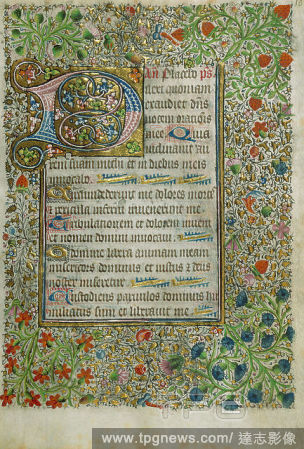 Placebo ps
lexi quoniam
exaudiet dns
vocem orationis
mee Quia
inclinavit au
rem suam michi et in diebus meis
invocabo
Circumdederunt me dolores mortis
et pericula inferni invenerunt me
Tribulationem et dolorem inveni
et nomen domini invocavi
O domine libera animam meam
misericors dominus et iustus et deus
noster miseretur
Custodiens parvulos dominus hu
miliatus sum et liberavit me
www.tpgnews.com/ 達志影像